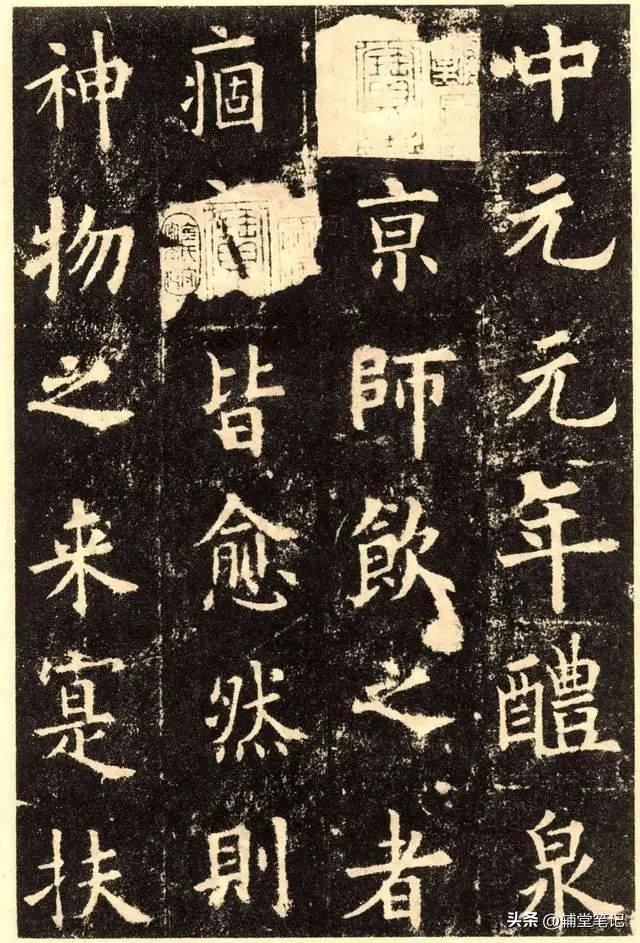 中元元年醴泉
亰師飲之者
痼皆愈然則
神物之来寔扶
头条 @辅堂笔记